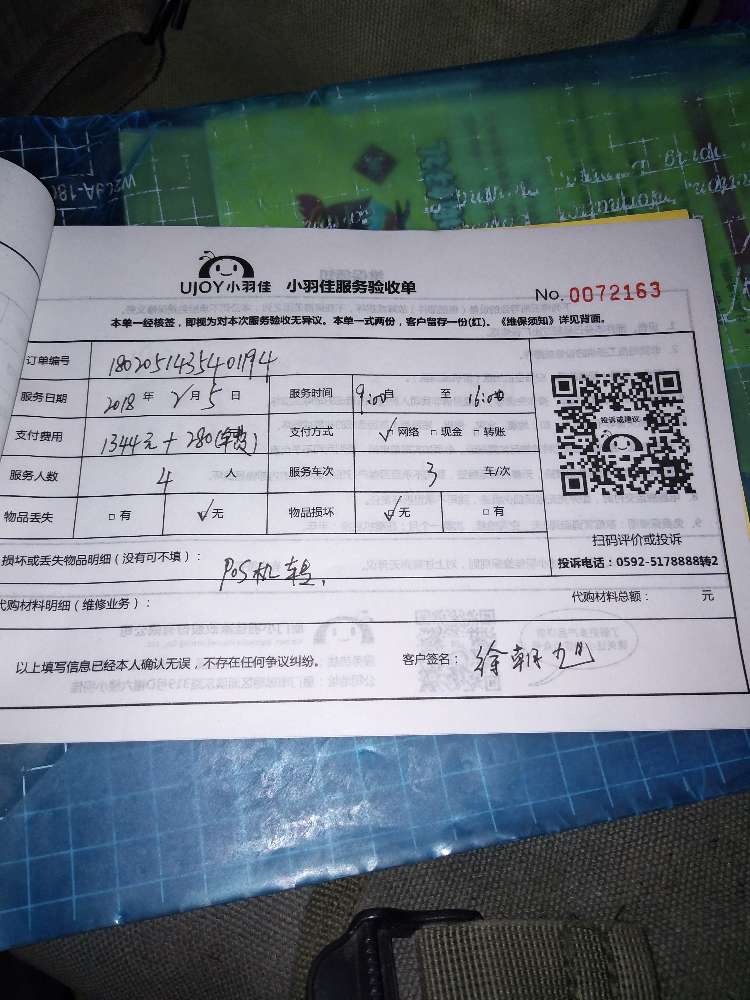 UJOY小羽佳 小羽佳服务验收单
No. 0072163
本单一经核签，即视为对本次服务验收无异议。本单一式两份，客户留存一份(红)。《维保须知》详见背面。
订单编号 1802051435401194
服务日期 2018 年 2 月 5 日 服务时间 9:00 自 至 16:00
支付费用 1344元+280(车费) 支付方式 ✓网络 □现金 □转账
服务人数 4 人 服务车次 3 车/次
物品丢失 □有 ✓无 物品损坏 ✓无 □有
投诉或建议
扫码评价或投诉
投诉电话：0592-5178888转2
损坏或丢失物品明细（没有可不填）：
POS机
代购材料明细（维修业务）： 代购材料总额： 元
以上填写信息已经本人确认无误，不存在任何争议纠纷。 客户签名： 徐朝